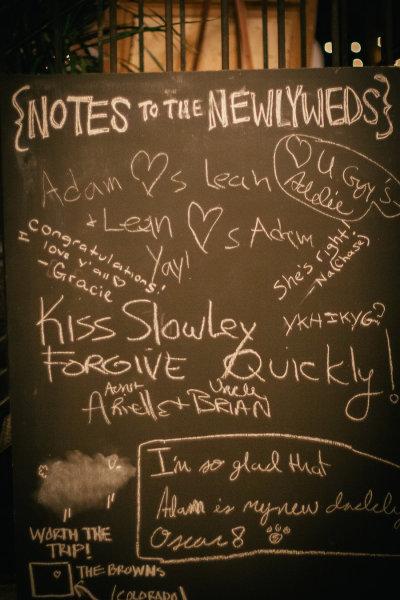 {NOTES TO THE NEWLYWEDS}
Adam ♡s Leah
♡ U Guys
Adelie
& Leah ♡s Adam
Yay!
Congratulations!
I love y'all ♡
- Gracie
She's right!
- Na(Chase)
Kiss Slowley
YKHIKYG?
FORGIVE Quickly!
Aunt Uncle
+ BRIAN
I'm so glad that
Adam is my new daddy
Oscar
WORTH THE
TRIP!
THE BROWNS
(COLORADO)